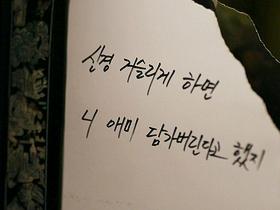 신경 거슬리게 하면
니 애미 담가버린다고 했지